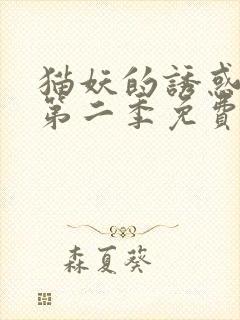 猫妖的誘惑
第二季免費
森夏葵